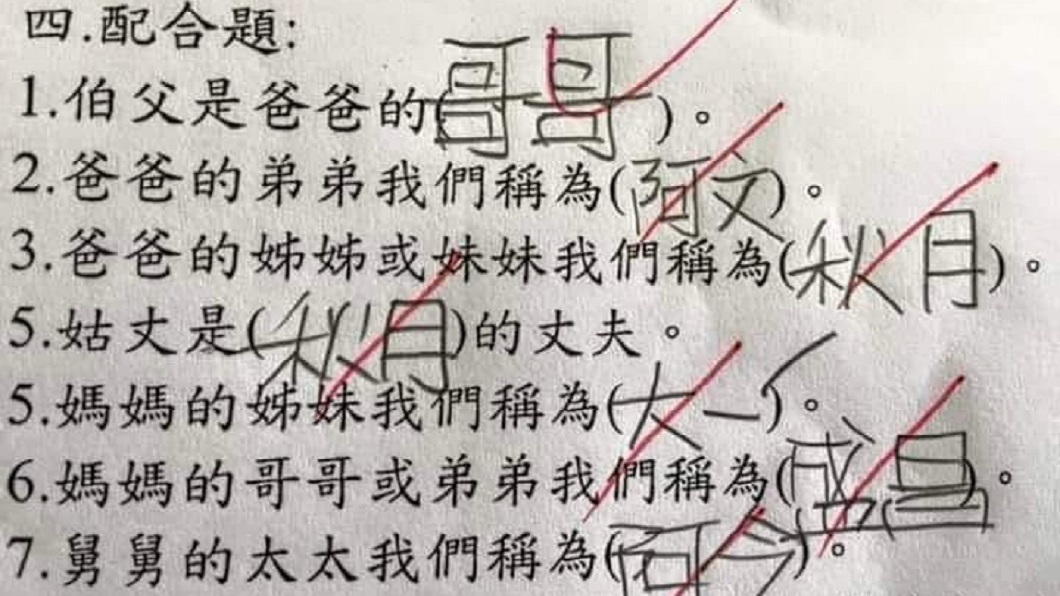 四.配合題:
1.伯父是爸爸的(哥哥)。
2.爸爸的弟弟我們稱為(阿文)。
3.爸爸的姊姊或妹妹我們稱為(秋月)。
5.姑丈是(秋月)的丈夫。
5.媽媽的姊妹我們稱為(大一)。
6.媽媽的哥哥或弟弟我們稱為(盛昌)。
7.舅舅的太太我們稱為(阿)。